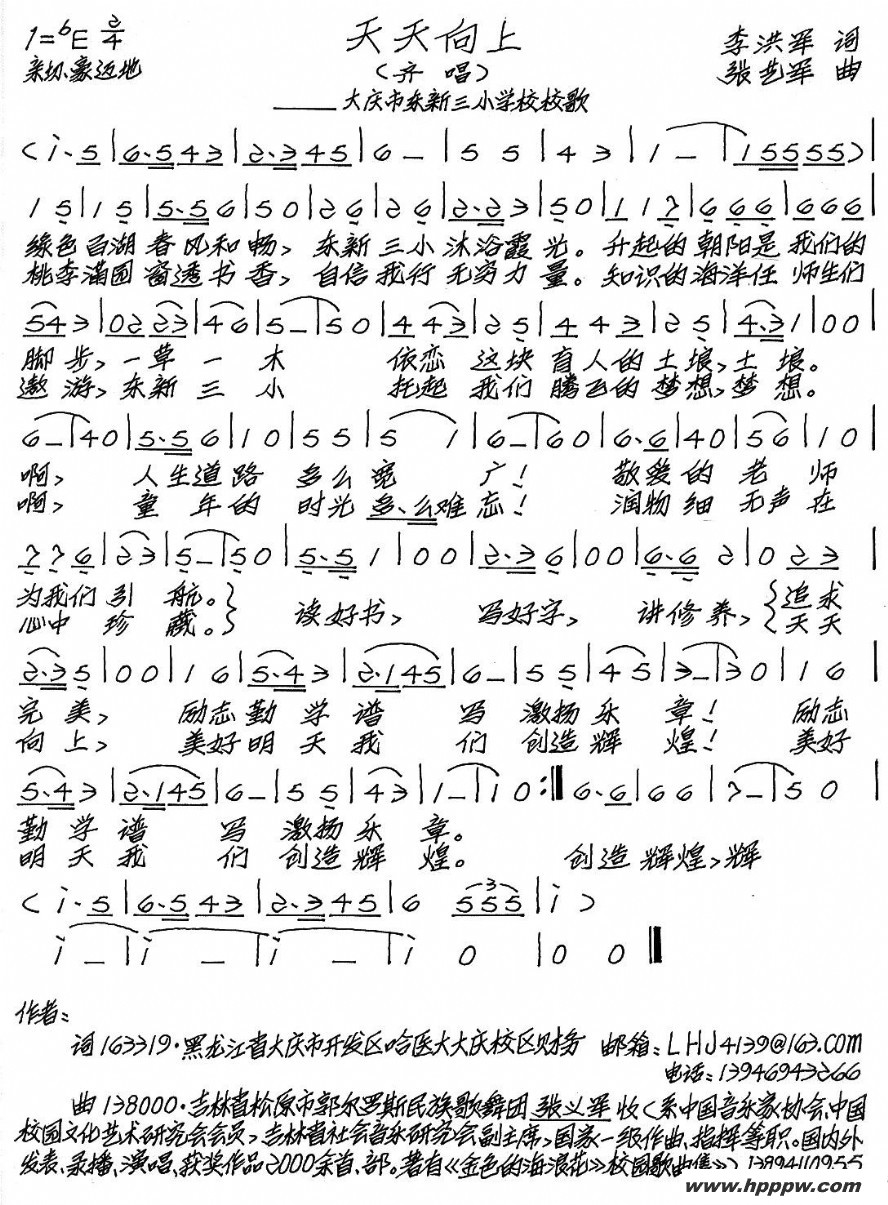 1=ᵇE 2/4
天天向上
李洪军 词
亲切、豪迈地
(齐 唱)
张艺军 曲
——大庆市东新三小学校校歌
(i·5|6·543|2·345|6 –|5 5|43|1 –|15555)|
15|15|5·56|50|26|26|2·23|50|117|666|666|
绿色百湖春风和畅,东新三小沐浴霞光。升起的朝阳是我们的
桃李满园窗透书香,自信我行无穷力量。知识的海洋任师生们
543|022 23|46|5–|50|443|25|443|25|4·31|00|
脚步,一草一木 依恋这块育人的土壤,土壤。
遨游,东新三小 托起我们腾飞的梦想,梦想。
6–|40|5·56|10|55|5 1|6–|60|6·6|40|56|10|
啊, 人生道路多么宽广! 敬爱的老师
啊, 童年的时光多么难忘! 润物细无声在
776|23|5–|50|5·51|00|2·36|00|6·62|023|
为我们引航。} 读好书, 写好字, 讲修养,{追求
心中珍藏。} {天天
2·35|00|16|5·43|2·145|6–|55|45|3–|30|16|
完美, 励志勤学谱写激扬乐章! 励志
向上, 美好明天我们创造辉煌! 美好
5·43|2·145|6–|55|43|1–|10:‖6·6|66|7–|50|
勤学谱写激扬乐章。
明天我们创造辉煌。 创造辉煌,辉
(i·5|6·543|2·345|6 555|i)
i –|i –|i –|i 0|0 0‖
作者:
词163319·黑龙江省大庆市开发区哈医大大庆校区财务 邮箱:LHJ4139@163.com
电话:13946943266
曲138000·吉林省松原市郭尔罗斯民族歌舞团 张义军 收(系中国音乐家协会、中国
校园文化艺术研究会会员,吉林省社会音乐研究会副主席,国家一级作曲、指挥等职。国内外
发表、录播、演唱、获奖作品2000余首、部。著有《金色的海浪花》校园歌曲集》)
www.hpppw.com